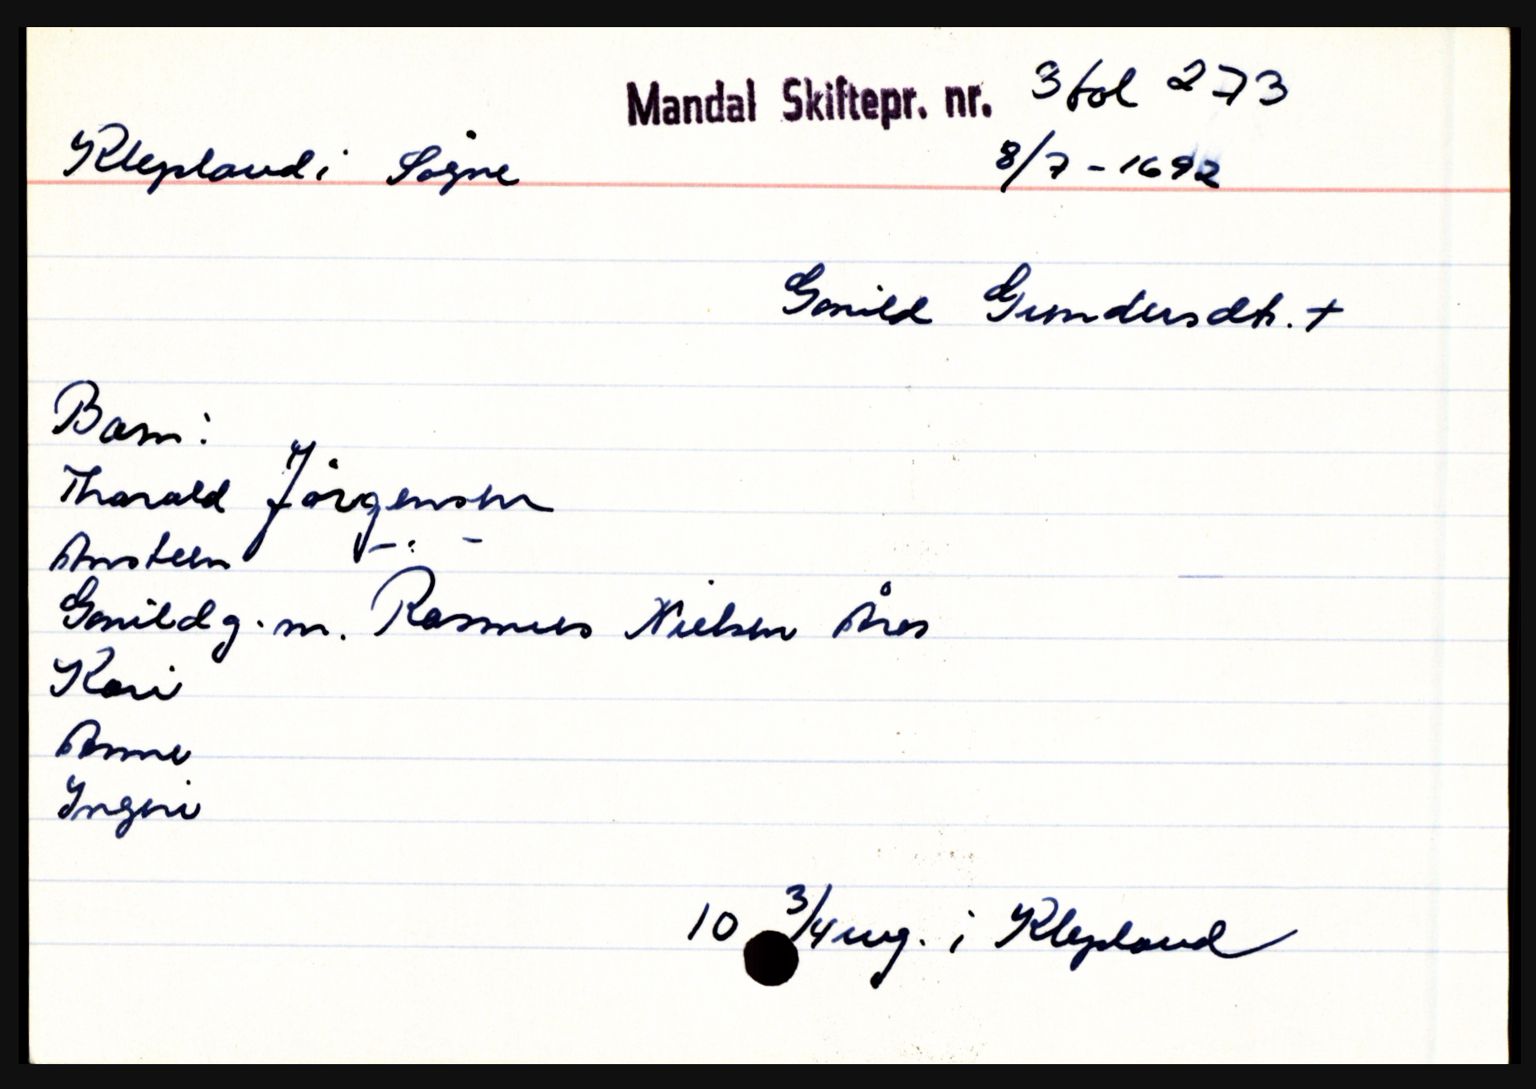 Mandal Skiftepr. nr. 3 fol 273
Klepland i Søgne 8/7 - 1692
Gonild Gundersdtr. +
Barn:
Tharald Jörgensen
Ansteen -:-
Gonild g. m. Rasmus Nielsen Åros
Kari
Anne
Ingeri
10 3/4 eng. i Klepland